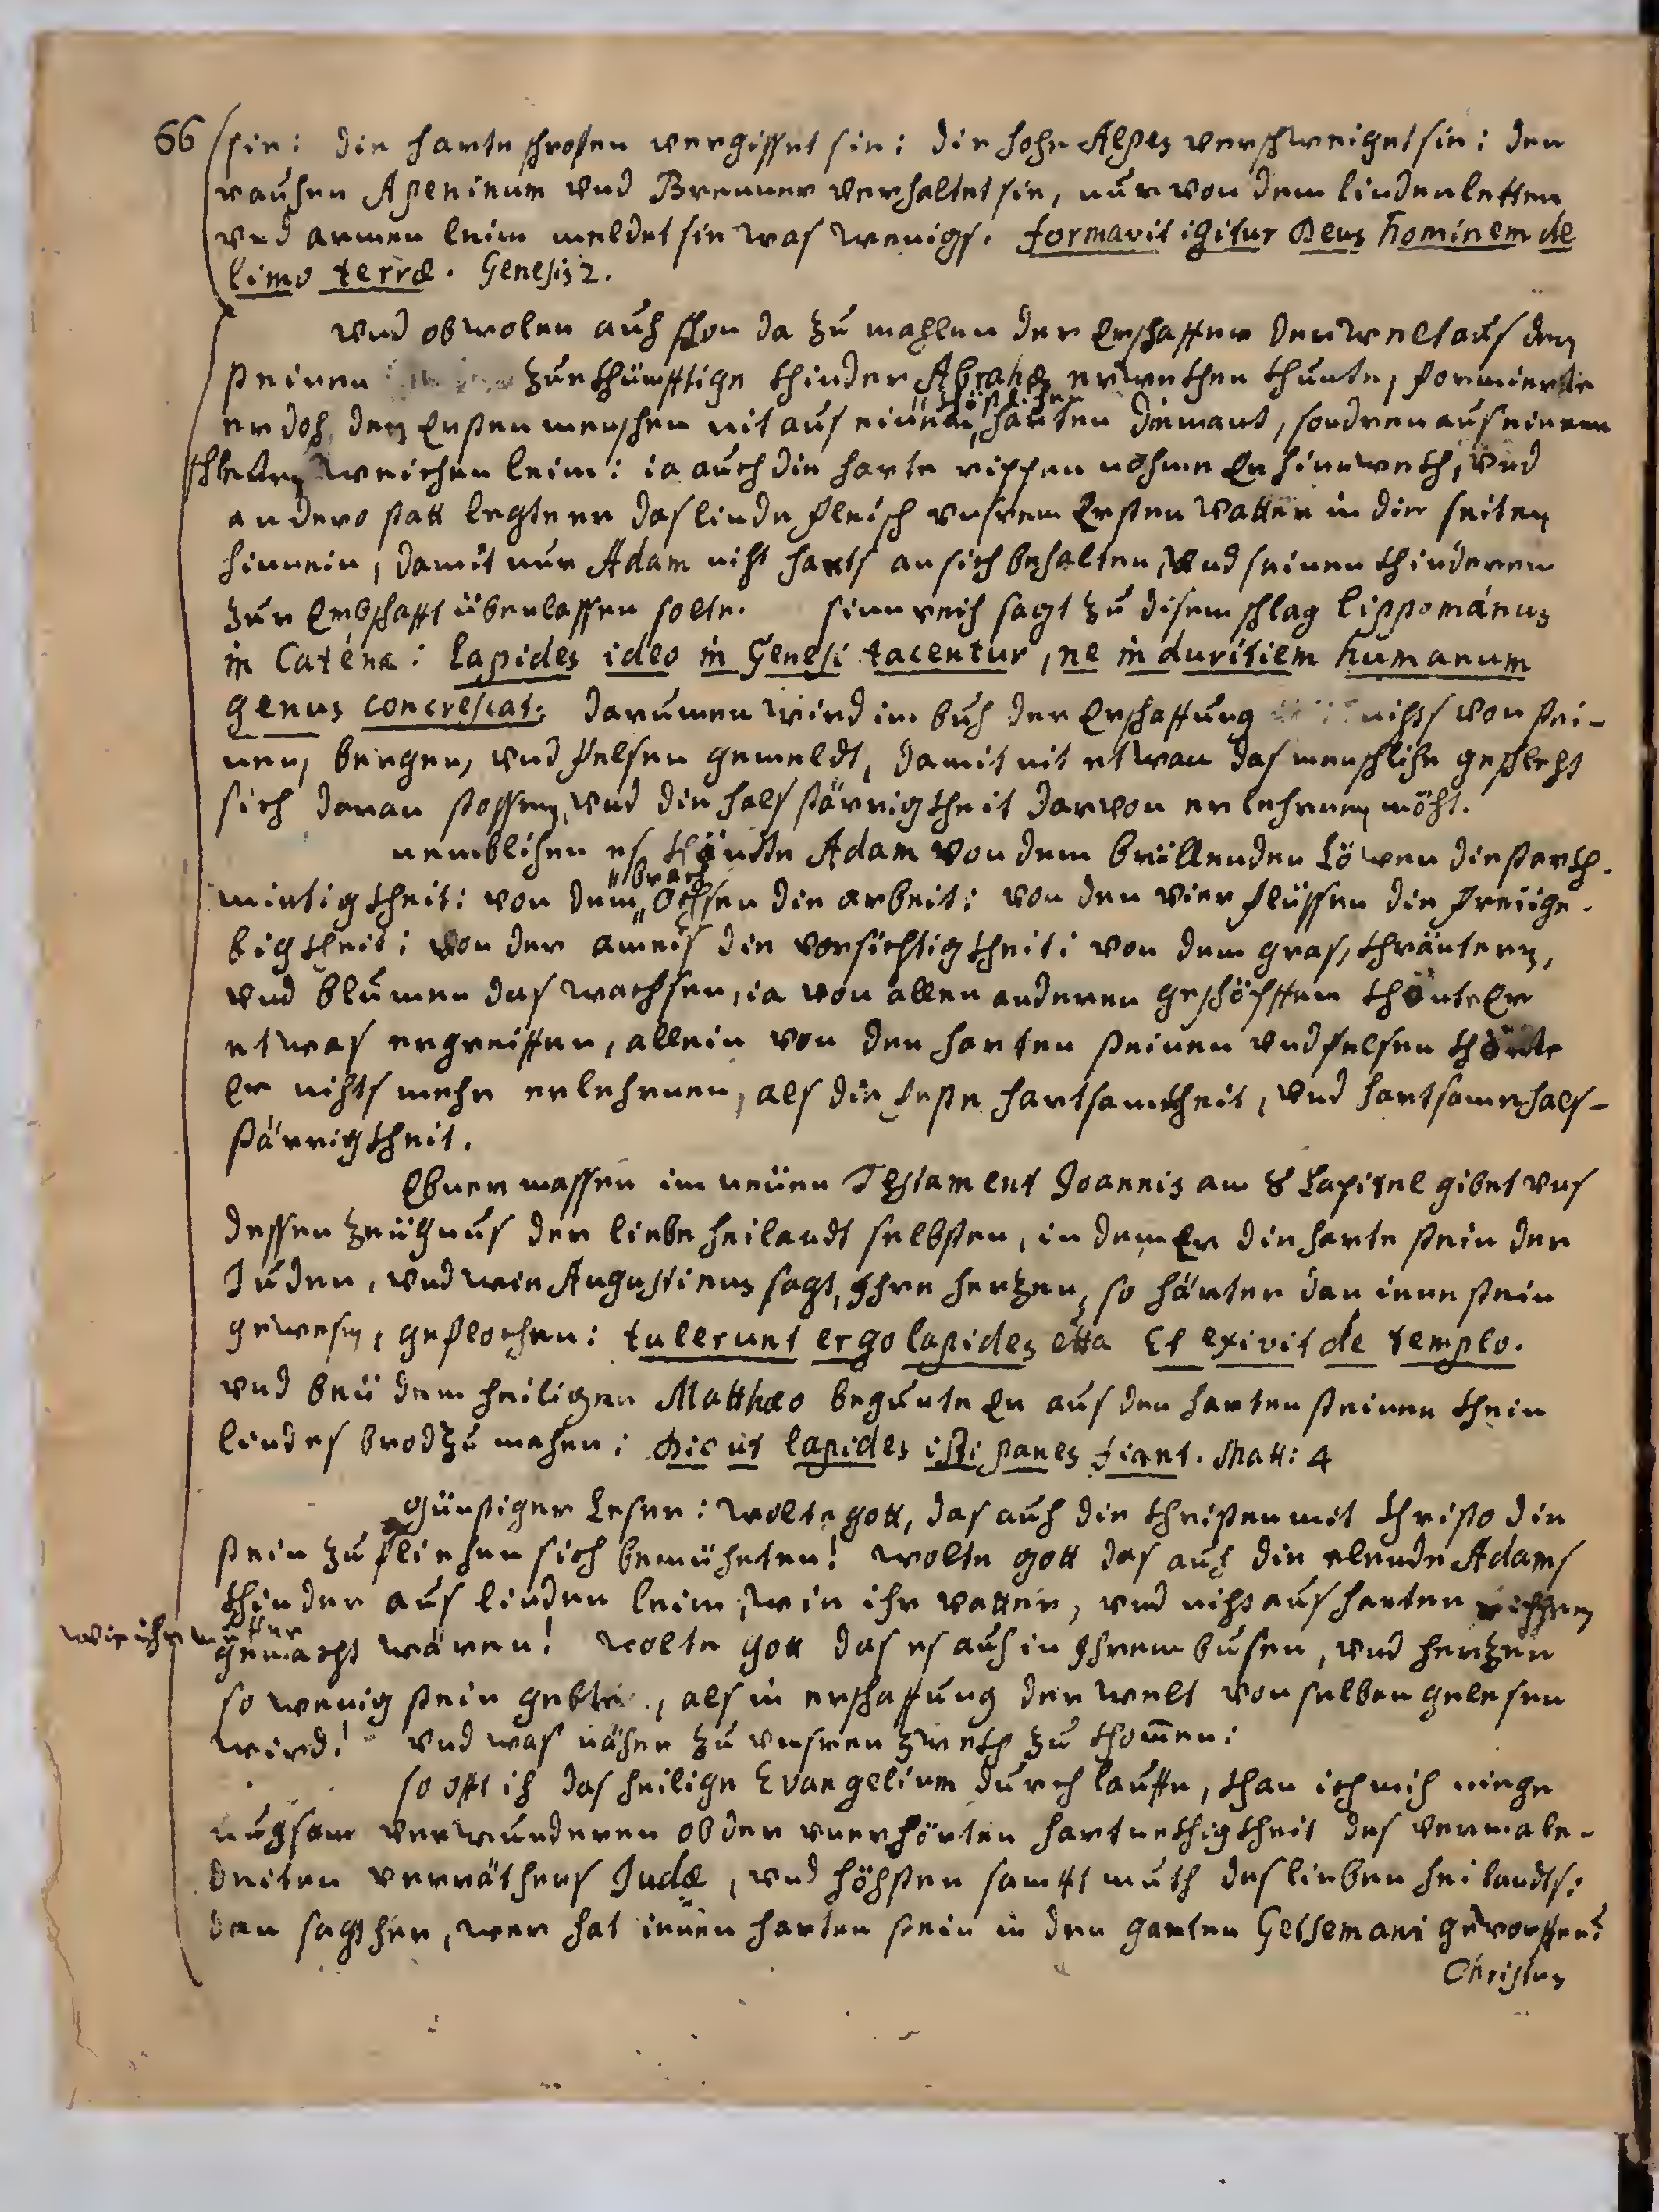 66 sie: die harte schrofen vergisset sie: die hohe Alpes verschweiget sie: den
rauhen Apeninum vnd Brenner verhaltet sie, nur von dem linden letten
vnd armen leim meldet sie was wenigs. formavit igitur Deus hominem de
limo terræ. Genesis 2.
vnd obwolen auch schon da zu mahlen der Erschaffer der welt aus den
steinen zuekhünfftige khinder Abrahæ erwekhen khunte, formierte
er doch den Ersten menschen nit aus einem köstlichen harten diemant, sondren aus einem
weichen leim: ia auch die harte rippen nohme Er hinwekh, vnd
anderst statt legte er das linde fleisch vnsrem Ersten Vatter in die seiten
hinnein, damit nur Adam nicht harts an sich behalten, vnd seinen khinderen
zur Erbschafft überlassen solte. sinnreich sagt zu disem schlag Lippománus
in Caténa: Lapides ideo in Genesi tacentur, ne in duritiem humanum
genus concrescat: darumen wird im buch der Erschaffung nichts von stei-
nen, bergen, vnd felsen gemeldt, damit nit etwan das menschliche geschlecht
sich daran stossen, vnd die halsstärrigkheit darvon erlehrnen möcht.
nemblichen es khönte Adam von dem brüllenden Löwen die starkh-
mietigkheit: von dem "brach" Ochsen die arbeit: von den vier flüssen die freüge-
bigkheit: von der ameis die vorsichtigkheit: von dem gras, khräutern,
vnd blumen das wachsen, ia von allen anderen geschöpffen khönte Er
etwas ergreiffen, allein von den harten steinen vnd felsen khönte
Er nichts mehr erlehrnen, als die feste hartsamkheit, vnd hartsame hals-
stärrigkheit.
Ebner massen im neüen Testament Joannis am 8 Capitel gibet vns
dessen zeügnus der liebe heilandt selbsten, in dem Er die harte stein der
Juden, vnd wie Augustinus sagt, Ihre hertzen, so härter dan iene stein
gewesen, geflochen: tulerunt ergo lapides etta Et exivit de templo.
vnd beü dem heiligen Matthæo begunte Er aus den harten steinen khein
lindes brod zu machen: Dic ut lapides isti panes fiant. Matt: 4
Günstiger Leser: wolte gott, das auch die khristen mit khristo die
stein zu fliehen sich bemüheten! wolte gott das auch die elende Adams
khinder aus linden leim, wie ihr vatter, vnd nicht aus harten rippen
wie ihr mutter gemacht wären! wolte gott das es auch in Ihrem busen, vnd hertzen
so wenig stein gebte, als in erschaffung der welt von selben gelesen
wird! vnd was näher zu vnsren zwekh zu khom̅en:
so offt ich das heilige Evangelium durchlauffe, khan ich mich nie ge
nugsam verwunderen ob der vnerhörten hartnekhigkheit des vermale-
deiten verräthers Judæ, vnd höchsten samfftmuth des lieben heilandts:
dan sagt her, wer hat ienen harten stein in den garten Getsemani geworffen?
Christus